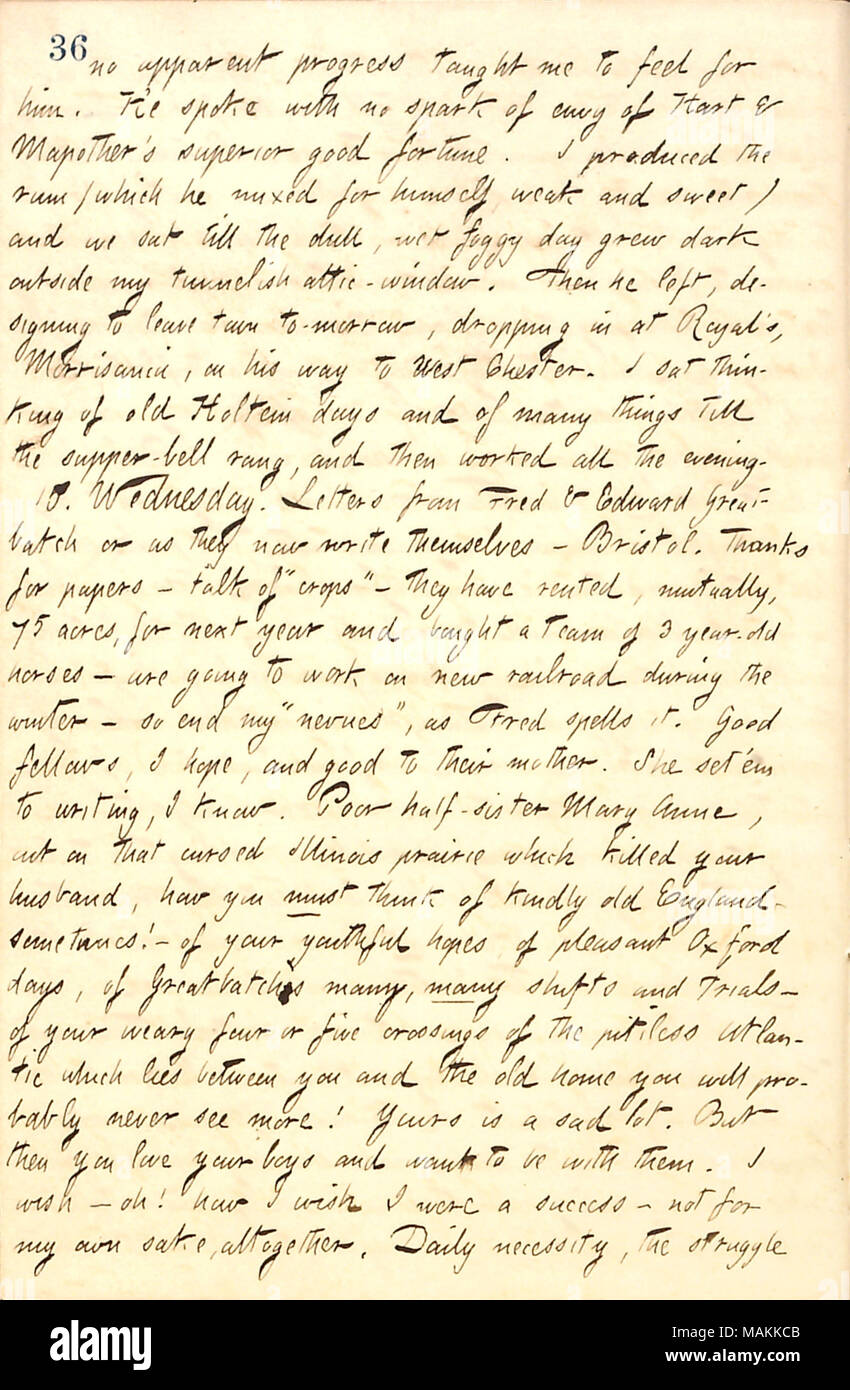 36
no apparent progress taught me to feel for
him. He spoke with no spark of envy of Hart &
Mapother's superior good fortune. I produced the
rum (which he mixed for himself weak and sweet)
and we sat till the dull, wet foggy day grew dark
outside my tunnelish attic-window. Then he left, de-
signing to leave town to-morrow, dropping in at Royal's,
Morrisania, on his way to West Chester. I sat thin-
king of old Holtein days and of many things till
the supper-bell rang, and then worked all the evening.
18. Wednesday. Letters from Fred & Edward Great-
batch or as they now write themselves - Bristol. Thanks
for papers - talk of "crops" - they have rented, mutually,
75 acres, for next year and bought a team of 3 year-old
horses - are going to work on new railroad during the
winter - so end my "nevues", as Fred spells it. Good
fellows, I hope, and good to their mother. She set 'em
to writing, I know. Poor half-sister Mary Anne,
out on that cursed Illinois prairie which killed your
husband, how you must think of kindly old England
sometimes! - of your youthful hopes of pleasant Oxford
days, of Greatbatch's many, many shifts and trials -
of your weary four or five crossings of the pitiless Atlan-
tic which lies between you and the old home you will pro-
bably never see more! Yours is a sad lot. But
then you love your boys and want to be with them. I
wish - oh! how I wish I were a success - not for
my own sake, altogether. Daily necessity, the struggle
alamy
Image ID: MAKKCB
www.alamy.com